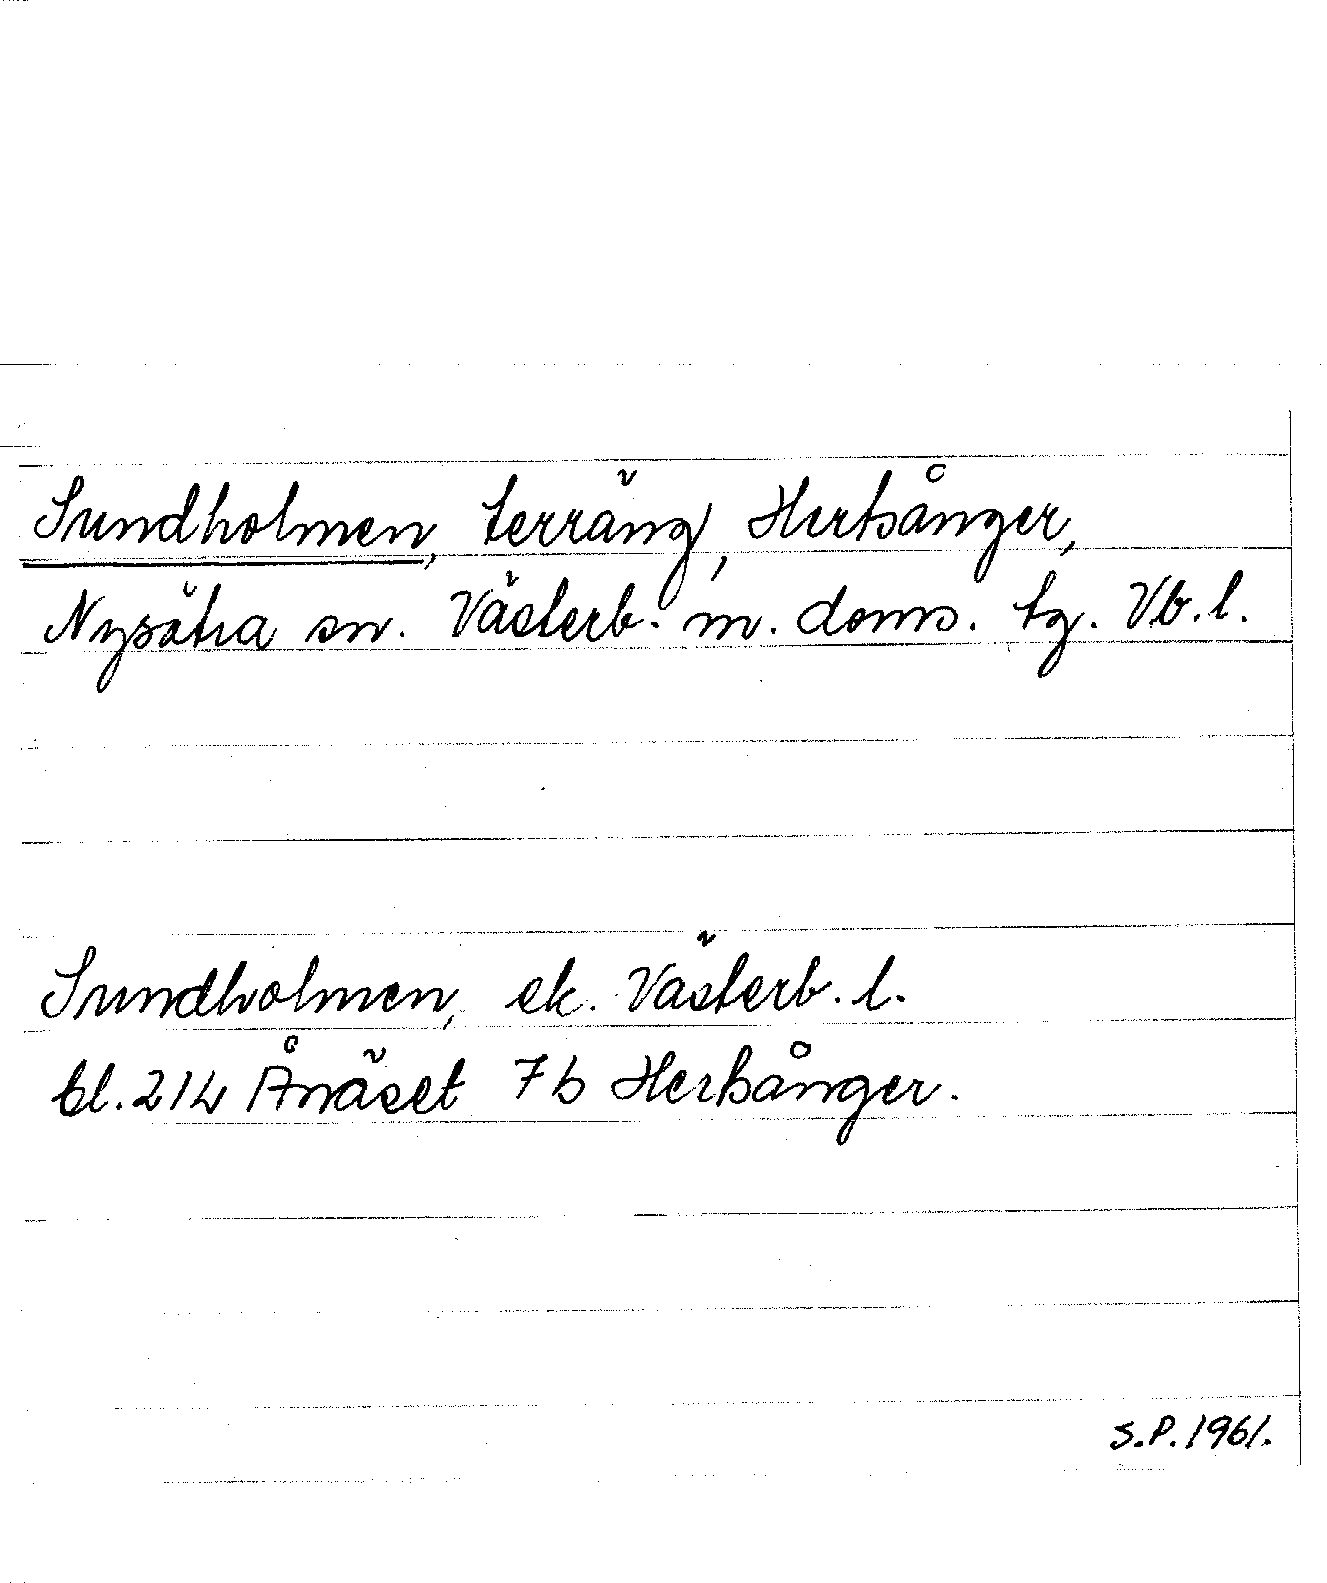 Sundholmen, terräng, Hertsånger,
Nysätra sn. Västerb. m. doms. tg. Vb. l.
Sundholmen, ek. Västerb. l.
bl. 21L Ånäset 7b Hertsånger.
S.P. 1961.